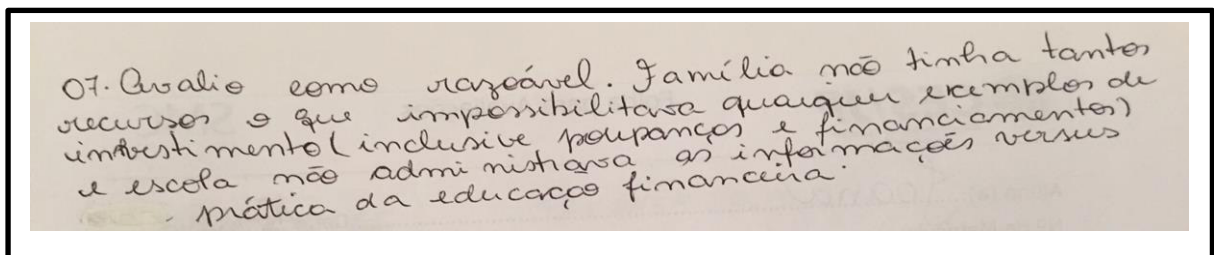 07. Avalio como razoável. Família não tinha tantos
recursos o que impossibilitava quaiquer exemplos de
investimento (inclusive poupanças e financiamentos)
e escola não administrava as informações versus
prática da educação financeira.